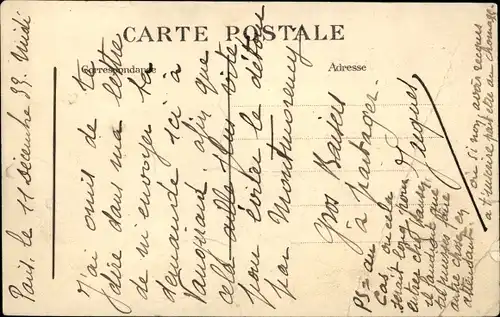 CARTE POSTALE
Correspondance
Adresse
Paris. le 11 décembre 33. Midi
J'ai omis de te
dire dans ma lettre
de m'envoyer ta
demande ici à
afin que
cela aille plus vite
pour éviter le détour
par Montmorency
Gros Baisers
à partager.
Jacques
PS = au
cas où cela
serait long pour
entrer chez
il faudrait que
tu puisses faire
autre chose en
attendant.
ou si non avoir recours